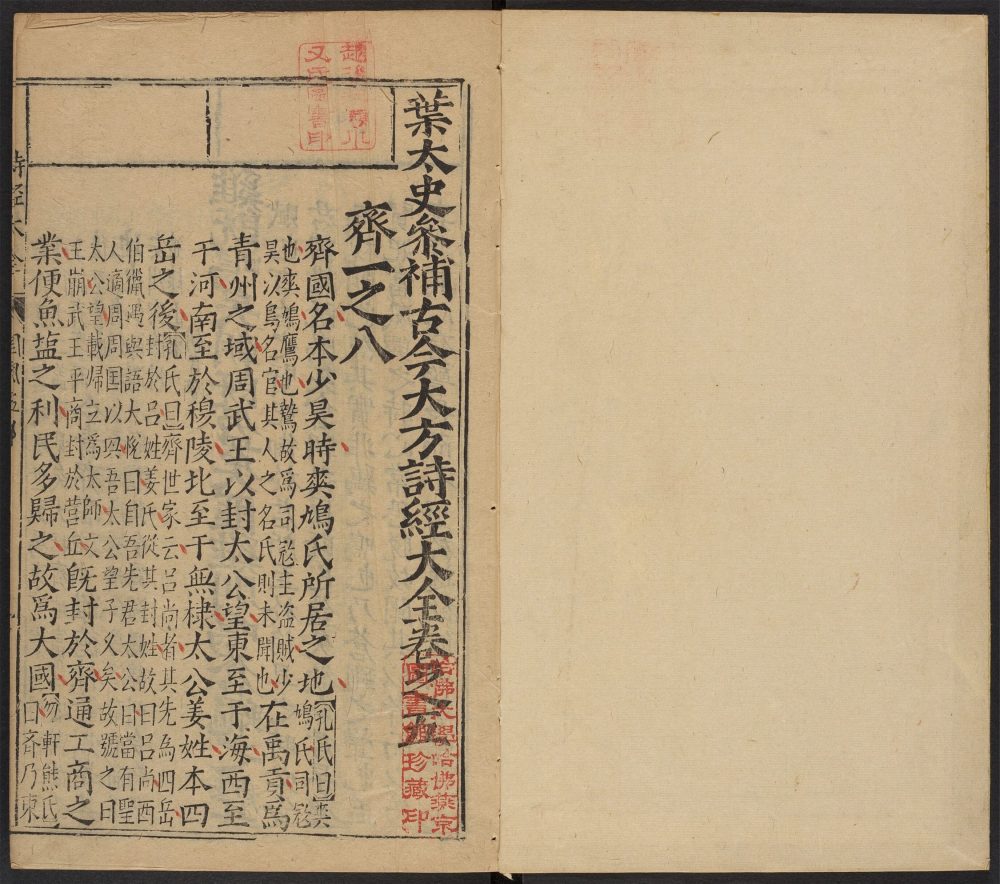 葉太史叅補古今大方詩經大全卷之五
齊一之八
齊國名本少昊時爽鳩氏所居之地孔氏曰爽
鳩氏司㓂
也爽鳩鷹也鷙故爲司㓂主盗賊少
昊以鳥名官其人之名氏則未聞也在禹貢爲
青州之域周武王以封太公望東至于海西至
于河南至於穆陵北至于無棣太公姜姓本四
岳之後孔氏曰齊世家云吕尚者其先爲四岳
封於吕姓姜氏從其封姓故曰吕尚西
伯獵遇與語大悅曰自吾先君太公曰當有聖
人適周周因以興吾太公望子久矣故號之曰
太公望載歸立爲太師文
王崩武王平商封於营丘旣封於齊通工商之
業便魚塩之利民多歸之故爲大國勿軒熊氏
曰斉乃東
詩經大全
哈佛大學哈佛燕京
圖書館珍藏印